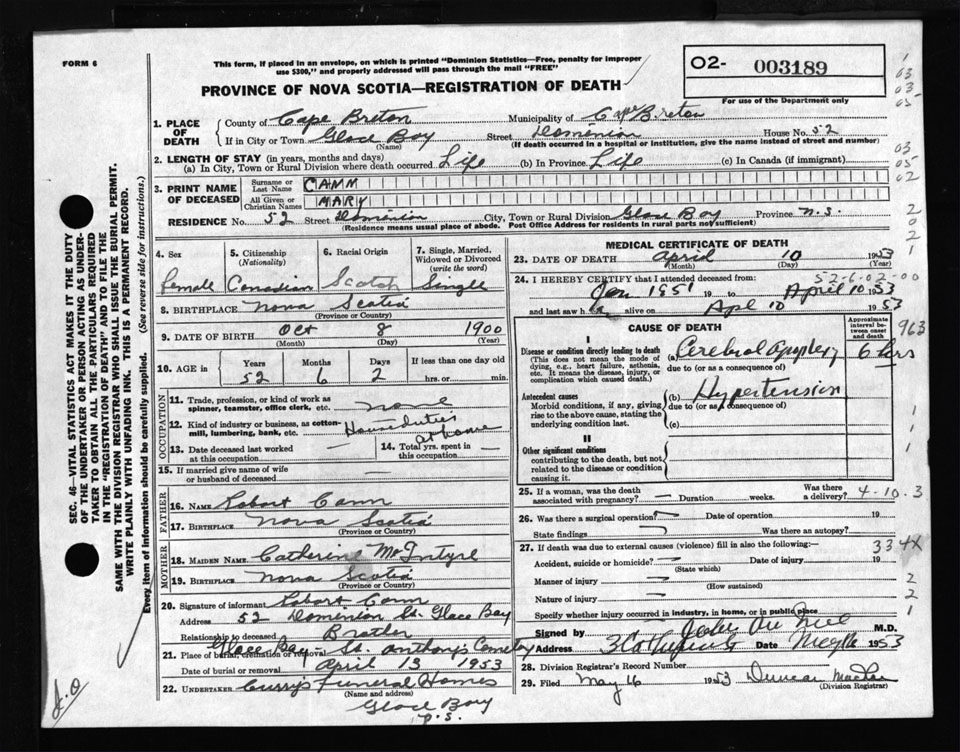 FORM 6
This form, if placed in an envelope, on which is printed "Dominion Statistics—Free, penalty for improper
use $300," and properly addressed will pass through the mail "FREE"
O2- 003189
For use of the Department only
PROVINCE OF NOVA SCOTIA—REGISTRATION OF DEATH
1. PLACE OF DEATH
County of Cape Breton Municipality of Cape Breton
If in City or Town Glace Bay Street Dominion House No. 52
(Name) (If death occurred in a hospital or institution, give the name instead of street and number)
2. LENGTH OF STAY (in years, months and days)
(a) In City, Town or Rural Division where death occurred Life (b) In Province Life (c) In Canada (if immigrant)
3. PRINT NAME OF DECEASED
Surname or Last Name CANN
All Given or Christian Names MARY
RESIDENCE No. 52 Street Dominion City, Town or Rural Division Glace Bay Province N.S.
(Residence means usual place of abode. Post Office Address for residents in rural parts not sufficient)
4. Sex 5. Citizenship (Nationality) 6. Racial Origin 7. Single, Married, Widowed or Divorced (write the word)
Female Canadian Scotch Single
8. BIRTHPLACE Nova Scotia
(Province or Country)
9. DATE OF BIRTH Oct 8 1900
(Month) (Day) (Year)
10. AGE in Years Months Days If less than one day old
52 6 2 hrs. or min.
OCCUPATION
11. Trade, profession, or kind of work as
spinner, teamster, office clerk, etc. none
12. Kind of industry or business, as cotton-
mill, lumbering, bank, etc. House duties
at home
13. Date deceased last worked
at this occupation
14. Total yrs. spent in
this occupation
15. If married give name of wife
or husband of deceased
FATHER
16. NAME Robert Cann
17. BIRTHPLACE Nova Scotia
(Province or Country)
MOTHER
18. MAIDEN NAME Catherine McIntyre
19. BIRTHPLACE Nova Scotia
(Province or Country)
20. Signature of informant Robert Cann
Address 52 Dominion St. Glace Bay
Relationship to deceased Brother
21. Place of burial, cremation or removal Glace Bay St. Anthony's Cemetery
Date of burial or removal April 13 1953
22. UNDERTAKER Curry's Funeral Homes
(Name and address)
Glace Bay
N.S.
MEDICAL CERTIFICATE OF DEATH
23. DATE OF DEATH April 10 1953
(Month) (Day) (Year)
24. I HEREBY CERTIFY that I attended deceased from:
52-6-02-00
Jan 1951 19 to April 10 1953
and last saw h alive on Apl 10 1953
CAUSE OF DEATH
Approximate interval between onset and death
963
I
Disease or condition directly leading to death
(This does not mean the mode of
dying, e.g., heart failure, asthenia,
etc. It means the disease, injury, or
complication which caused death.)
(a) Cerebral Apoplexy 6 hrs
due to (or as a consequence of)
Antecedent causes
Morbid conditions, if any, giving
rise to the above cause, stating the
underlying condition last.
(b) Hypertension
due to (or as a consequence of)
(c)
II
Other significant conditions
contributing to the death, but not
related to the disease or condition
causing it.
25. If a woman, was the death
associated with pregnancy? — Duration weeks. Was there
a delivery?
4-10-3
26. Was there a surgical operation? Date of operation 19
State findings Was there an autopsy?
27. If death was due to external causes (violence) fill in also the following:—
334X
Accident, suicide or homicide? Date of injury 19
(State which)
Manner of injury
(How sustained)
Nature of injury
Specify whether injury occurred in industry, in home, or in public place
Signed by M.D.
Address Date May 16 1953
28. Division Registrar's Record Number
29. Filed May 16 1953 Duncan
(Division Registrar)
SEC. 46—VITAL STATISTICS ACT MAKES IT THE DUTY
OF THE UNDERTAKER OR PERSON ACTING AS UNDER-
TAKER TO OBTAIN ALL THE PARTICULARS REQUIRED
IN THE "REGISTRATION OF DEATH" AND TO FILE THE
SAME WITH THE DIVISION REGISTRAR WHO SHALL ISSUE THE BURIAL PERMIT.
WRITE PLAINLY WITH UNFADING INK. THIS IS A PERMANENT RECORD.
Every item of information should be carefully supplied. (See reverse side for instructions.)